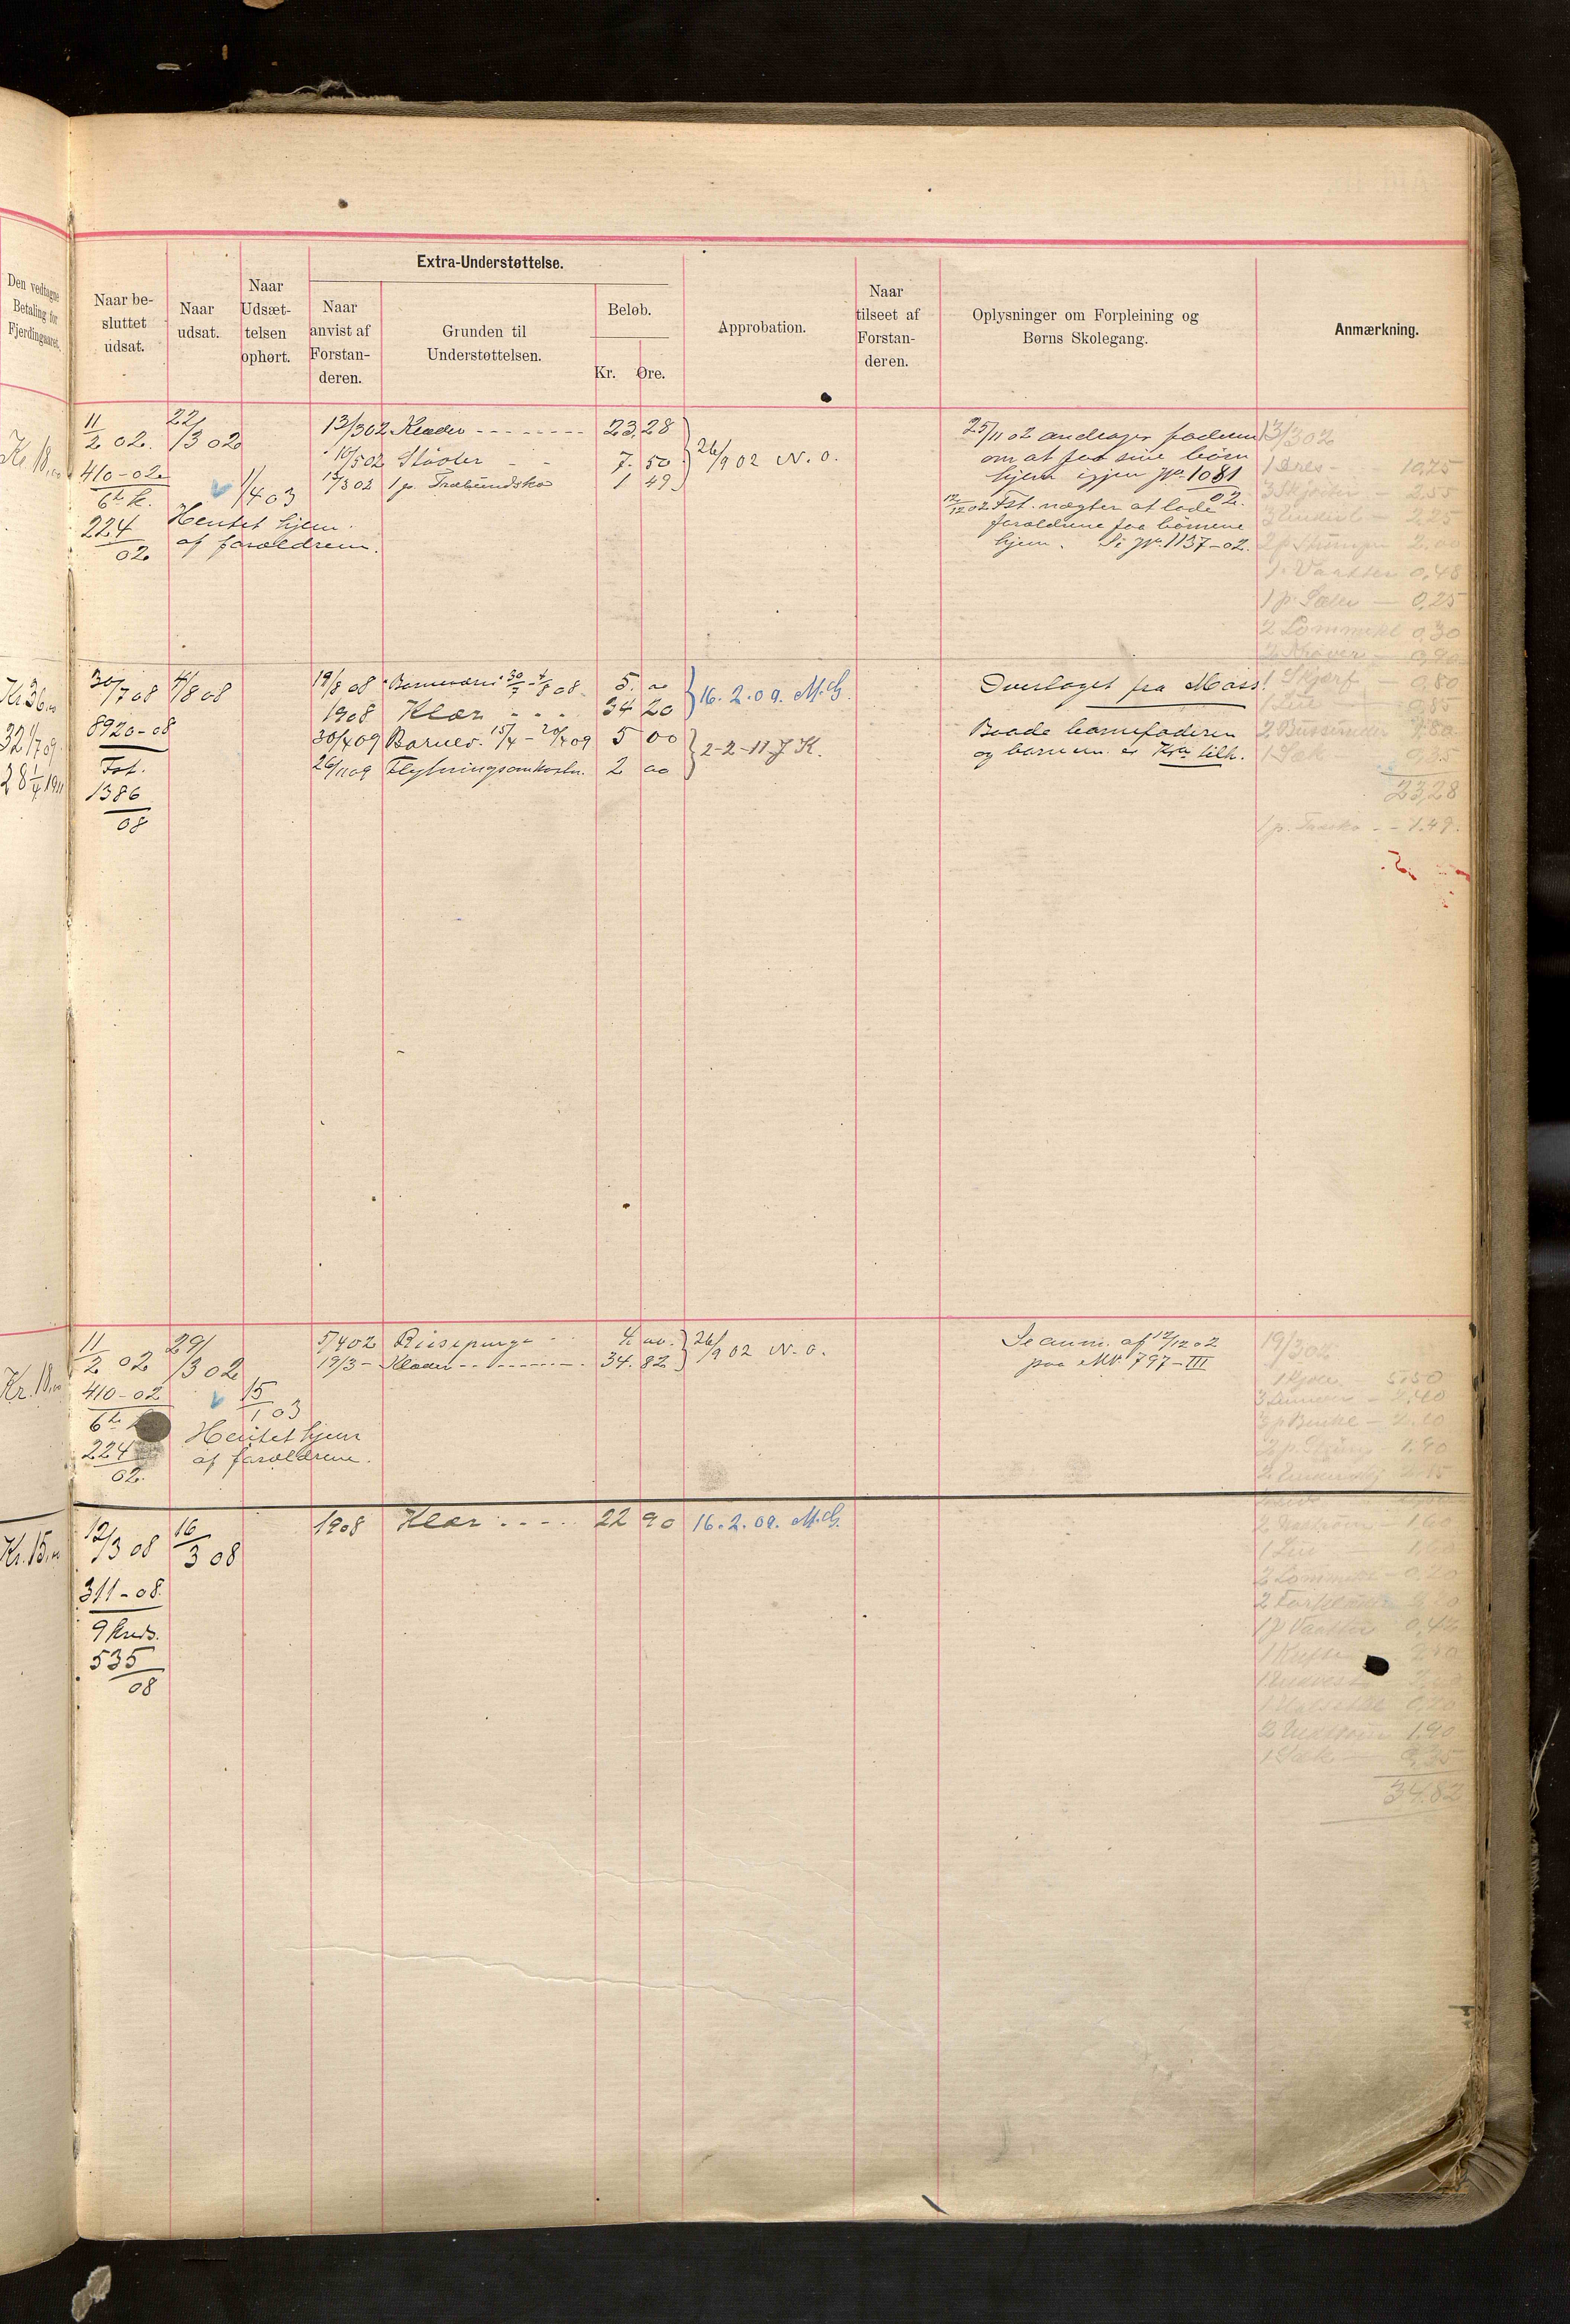 Den vedtagne
Betaling for
Fjerdingaaret.
Naar be-
sluttet
udsat.
Naar
udsat.
Naar
Udsæt-
telsen
ophørt.
Extra-Understøttelse.
Naar
anvist af
Forstan-
deren.
Grunden til
Understøttelsen.
Beløb.
Kr. Øre.
Approbation.
Naar
tilseet af
Forstan-
deren.
Oplysninger om Forpleining og
Børns Skolegang.
Anmærkning.
Kr. 18,00
11/2 02.
410-02
6te k.
224
02
22/3 02
1/4 03
Hentet hjem
af forældrene.
13/3 02 Klæder - - - - - - - - 23,28
10/5 02 Støvler - - 7. 50
13/3 02 1 p. Træbundsko 1 49
26/9 02 N. O.
25/11 02 andrager faderen
om at faa sine børn
hjem igjen Jr. 1081
02.
12/12 02 Fst. nægter at lade
forældrene faa børnene
hjem. Se Jr. 1137-02.
13/3 02
1 Dres - 10,25
3 Skjorter - 2.55
2 p. Strømper 2.00
1 p. Vaatter 0,48
1 p. Seler - 0,25
2 Lommekl 0,30
1 Skjærf - 0,80
1 Lue - 0,85
2 Bussruller
1 Sæk
23,28
1 p. Træsko - - 1.49.
Kr. 36,00
32 1/7 09
28 1/4 1911
30/7 08
8920-08
Fst.
1386
08
4/8 08
19/8 08 Barneværn 30/7 - 4/8 08 5. 00
1908 Klær - - - 34 20
30/4 09 Barnev. 15/4 - 20/4 09 5 00
26/11 09 Flytningsomkostn. 2 00
16.2.09. M.G.
2-2-11 J K.
Overtaget fra Moss!
Baade barnefaderen
og barnem. er Kra tilh.
Kr. 18,00
11/2 02
410-02
6te
224
02.
29/3 02
15/1 03
Hentet hjem
af forældrene.
5/4 02 Reisepenge - - 4. 00.
19/3 - Klæder - - - - - - - - 34. 82
26/9 02 N. O.
Se anm. af 12/12 02
paa M№ 797-III
19/3 02
1 Kjole - 5.50
2 p. Strømp 1.90
1 Lue - 1,60
2 Lommekl - 0,20
1 p Vaatter 0,42
1 Sæk - 0,35
34.82
Kr. 15,00
12/3 08
311-08.
9 Kreds.
535
08
16/3 08
1908 Klær - - - - - 22 90
16.2.09. M.G.